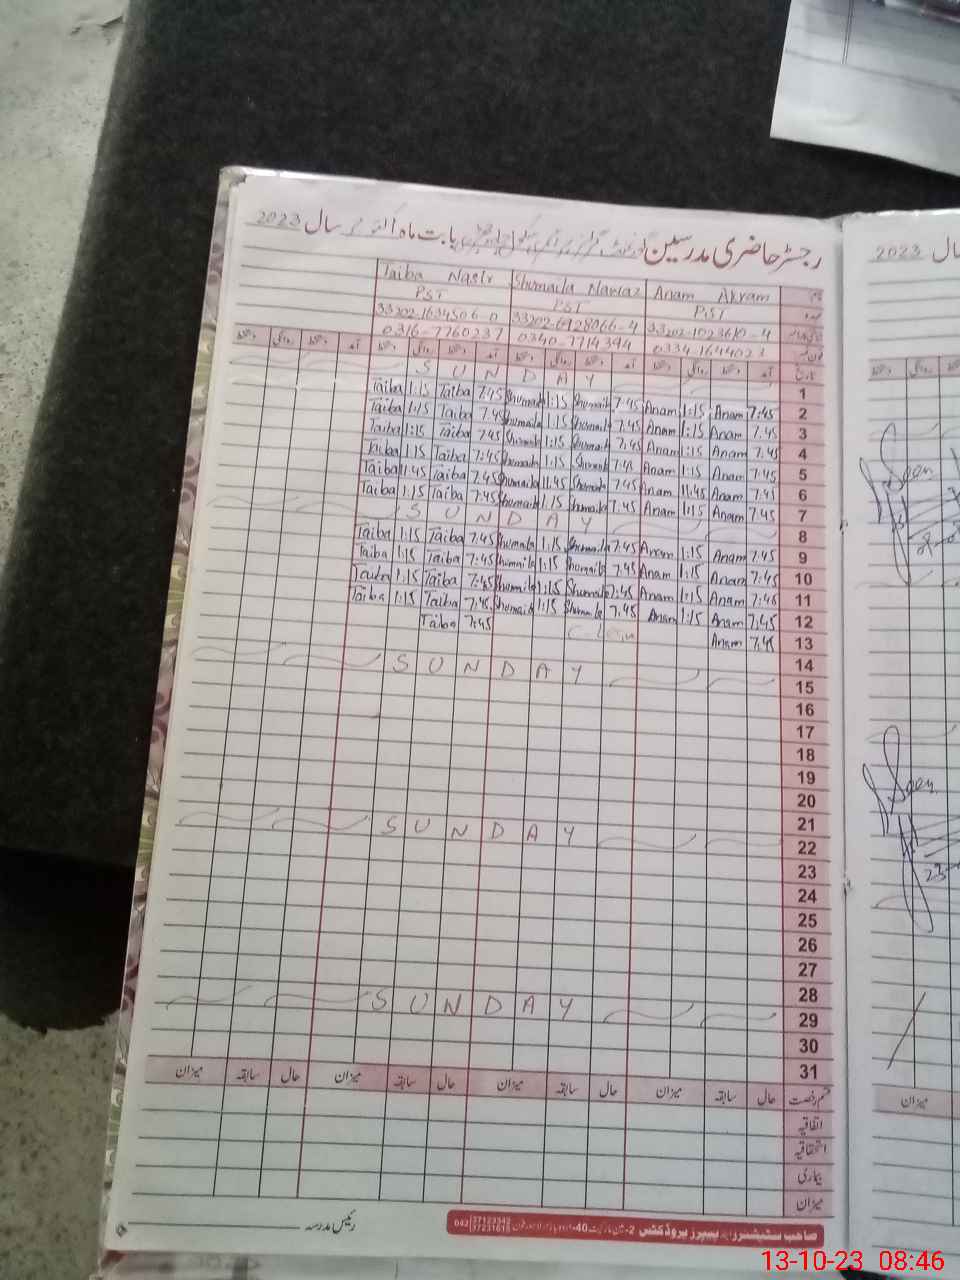 رجسٹر حاضری مدرسین گورنمنٹ گرلز پرائمری سکول بابت ماہ اکتوبر سال 2023
نام Anam Akram Shumaila Nawaz Taiba Nasir
عہدہ PST PST PST
33202-1023610-4 33202-6928066-4 33202-1634506-0
فون نمبر 0334-1644023 0340-7714394 0316-7760237
تاریخ آمد دستخط روانگی دستخط آمد دستخط روانگی دستخط آمد دستخط روانگی دستخط آمد دستخط روانگی دستخط
1 S U N D A Y
2 7:45 Anam 1:15 Anam 7:45 Shumaila 1:15 Shumaila 7:45 Taiba 1:15 Taiba
3 7:45 Anam 1:15 Anam 7:45 Shumaila 1:15 Shumaila 7:45 Taiba 1:15 Taiba
4 7:45 Anam 1:15 Anam 7:45 Shumaila 1:15 Shumaila 7:45 Taiba 1:15 Taiba
5 7:45 Anam 1:15 Anam 7:45 Shumaila 1:15 Shumaila 7:45 Taiba 1:15 Taiba
6 7:45 Anam 11:45 Anam 7:45 Shumaila 11:45 Shumaila 7:45 Taiba 11:45 Taiba
7 7:45 Anam 1:15 Anam 7:45 Shumaila 1:15 Shumaila 7:45 Taiba 1:15 Taiba
8 S U N D A Y
9 7:45 Anam 1:15 Anam 7:45 Shumaila 1:15 Shumaila 7:45 Taiba 1:15 Taiba
10 7:45 Anam 1:15 Anam 7:45 Shumaila 1:15 Shumaila 7:45 Taiba 1:15 Taiba
11 7:45 Anam 1:15 Anam 7:45 Shumaila 1:15 Shumaila 7:45 Taiba 1:15 Taiba
12 7:45 Anam 1:15 Anam 7:45 Shumaila 1:15 Shumaila 7:45 Taiba 1:15 Taiba
13 7:45 Anam 7:45 Taiba
14
15 S U N D A Y
16
17
18
19
20
21
22 S U N D A Y
23
24
25
26
27
28
29 S U N D A Y
30
31
قسم رخصت حال سابقہ میزان حال سابقہ میزان حال سابقہ میزان حال سابقہ میزان
اتفاقیہ
استحقاقیہ
بیماری
میزان
رئیس مدرسہ
صاحب سٹیشنرز اینڈ پیپرز پروڈکشن
042 37123342
37231616
سال 2023
Seen
Seen
میزان
13-10-23 08:46